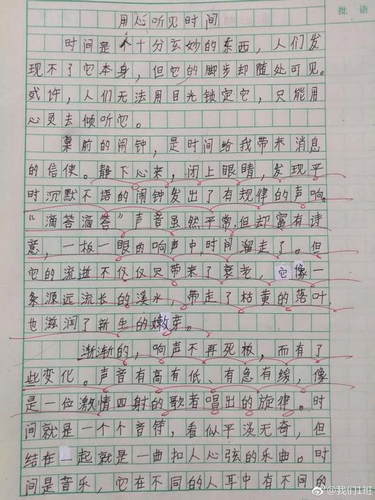 批语
用心听见时间
时间是个十分玄妙的东西，人们发
现不了它本身，但它的脚步却随处可见。
或许，人们无法用目光锁定它，只能用
心灵去倾听它。
桌前的闹钟，是时间给我带来消息
的信使。静下心来，闭上眼睛，发现平
时沉默不语的闹钟发出了有规律的声响。
“滴答滴答”声音虽然平常但却富有诗
意，一板一眼的响声中，时间溜走了。但
它的流逝不仅仅只带来了衰老，它像一
条源远流长的溪水，带走了枯黄的落叶，
也滋润了新生的嫩芽。
渐渐的，响声不再死板，而有了
些变化。声音有高有低、有急有缓，像
是一位激情四射的歌者唱出的旋律。时
间就是一个个音符，看似平淡无奇，但
结在一起就是一曲扣人心弦的乐曲。时
间是音乐，它在不同的人耳中有不同
@我们1班